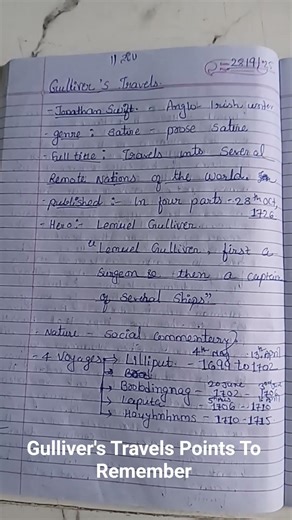 28/9/25
Gulliver's Travels.
- Jonathan Swift - Anglo Irish writer
- genre : Satire - prose Satire
- Full title : Travels into Several
Remote Nations of the World.
- published :- In four parts - 28th Oct, 1726
- Hero :- Lemuel Gulliver.
"Lemuel Gulliver, first a
Surgeon & then a captain
of Several Ships"
- Nature - Social Commentary
4th May 13th April
- 4 Voyages → Lilliput - 1699 to 1702
20 June
→ Brobdingnag - 1702 -
→ Laputa - 1706 - 1710
→ Houyhnhnms - 1710 - 1715
Gulliver's Travels Points To
Remember